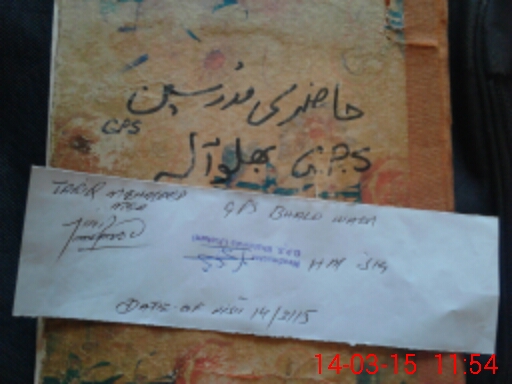 حاضری مدرسین
GPS
G.P.S بھلو آلہ
TARIQ MEHMOOD
GPS BHALO WALA
HM SIG
DATE OF VISIT 14/3/15
14-03-15 11:54